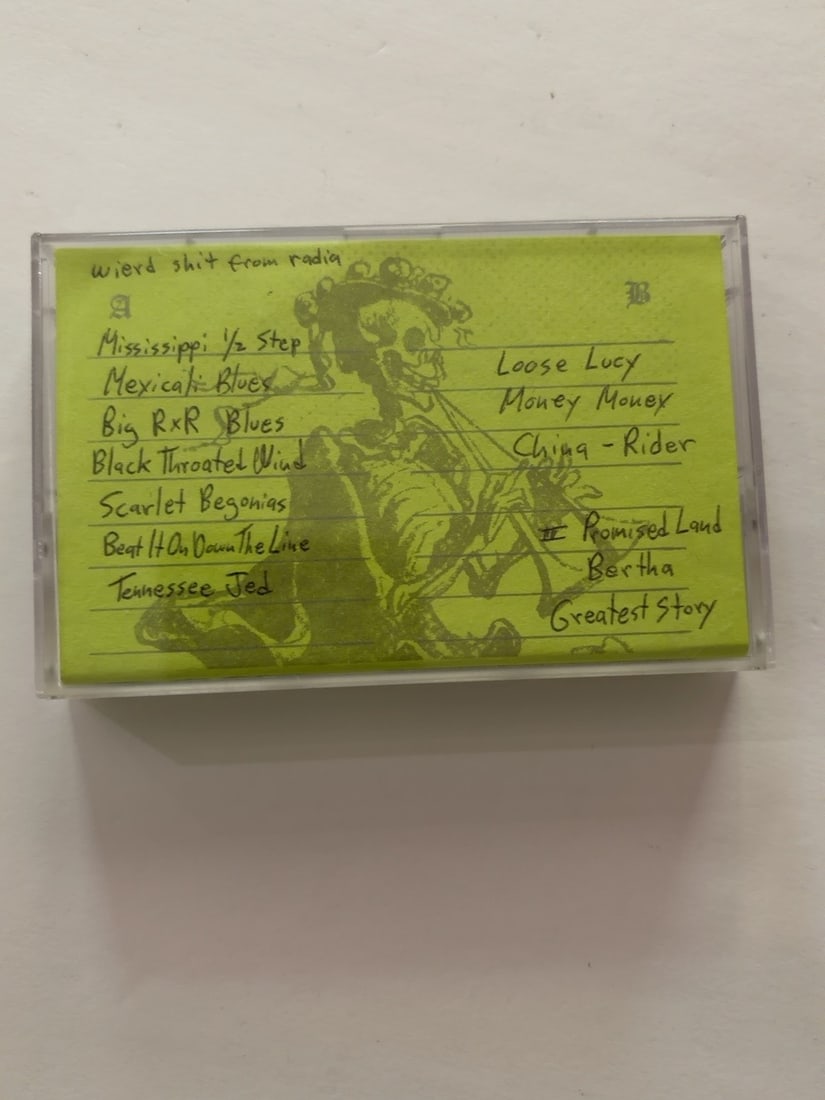 wierd shit from radia
A
Mississippi 1/2 Step
Mexicali Blues
Big RxR Blues
Black Throated Wind
Scarlet Begonias
Beat It On Down The Line
Tennessee Jed
B
Loose Lucy
Money Money
China - Rider
II Promised Land
Bertha
Greatest Story